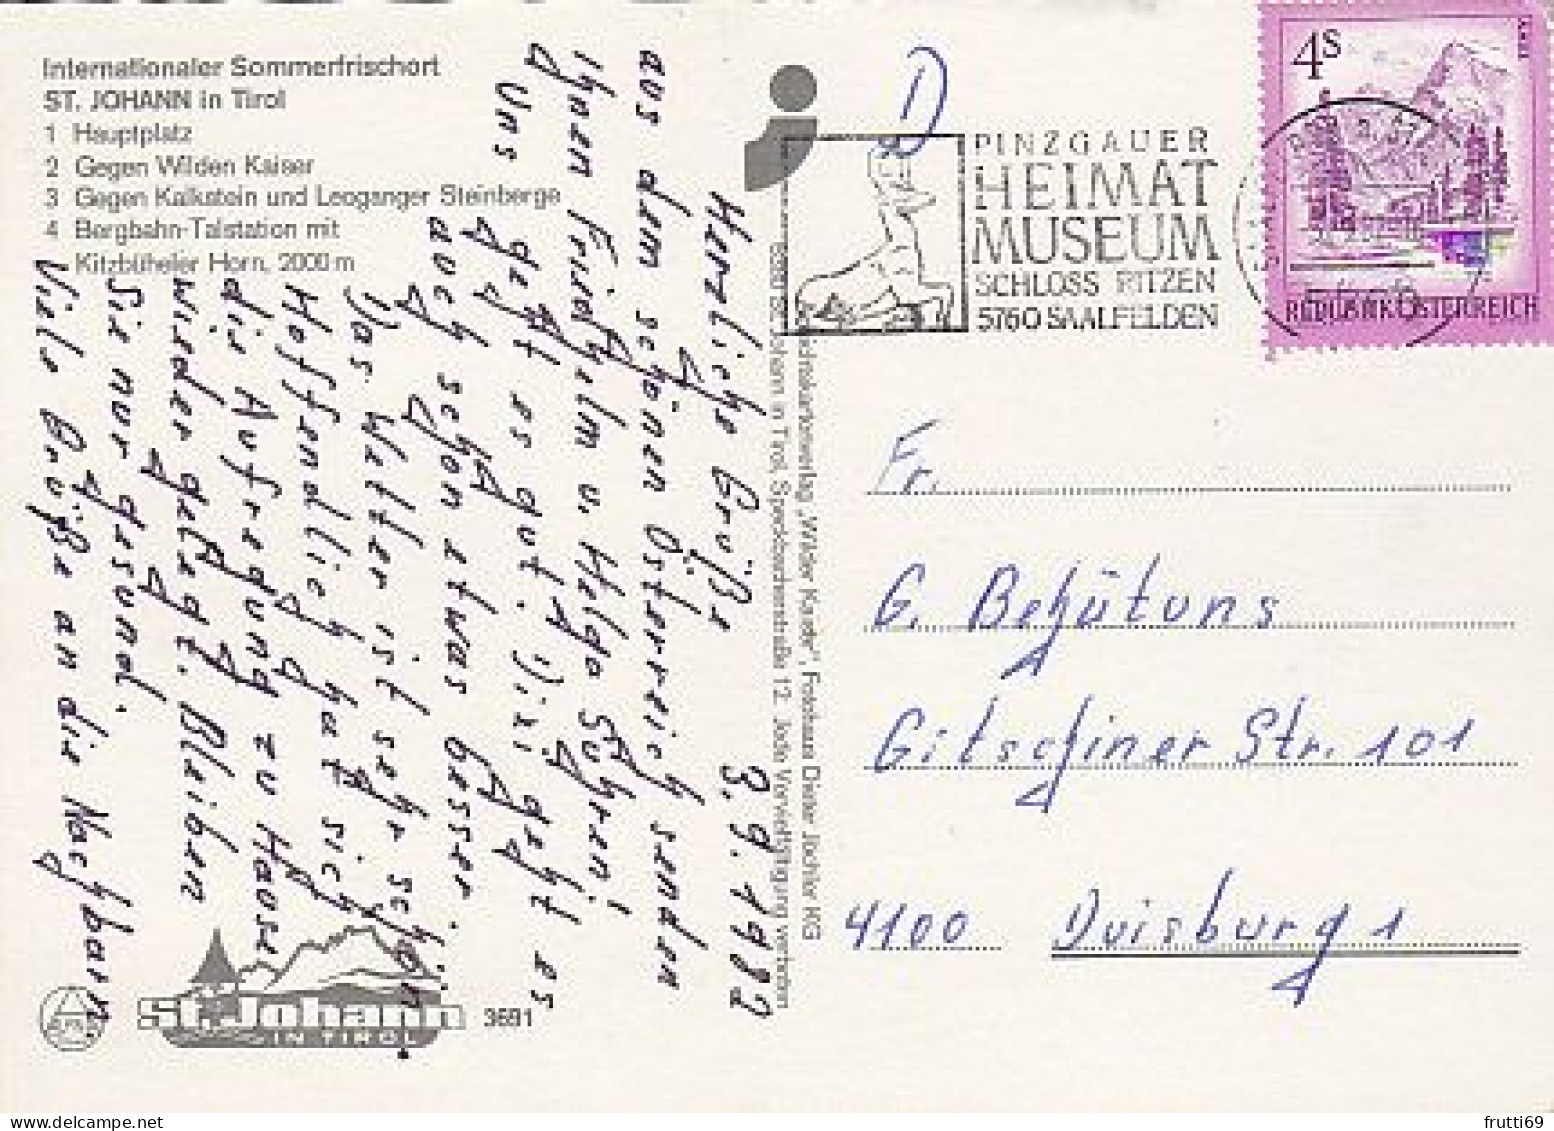 Internationaler Sommerfrischort
ST. JOHANN in Tirol
1 Hauptplatz
2 Gegen Wilden Kaiser
3 Gegen Kalkstein und Leoganger Steinberge
4 Bergbahn-Talstation mit
Kitzbüheler Horn, 2000 m
3.9.1982
Herzliche Grüße
aus dem schönen Österreich senden
Ihnen Friedhelm u. Helga
Uns geht es gut. geht es
auch schon etwas besser.
Das Wetter ist sehr schön.
Hoffendlich hat sich
die Aufregung zu Hause
wieder gelegt. Bleiben
Sie nur gesund.
Viele Grüße an die Nachbarn
St. Johann
IN TIROL
3691
Ansichtskartenverlag „Wilder Kaiser", Fotohaus Dieter Jöchler KG
6380 St. Johann in Tirol, Speckbacherstraße 12. Jede Vervielfältigung verboten
D
PINZGAUER
HEIMAT
MUSEUM
SCHLOSS RITZEN
5760 SAALFELDEN
4S
REPUBLIK ÖSTERREICH
Fr.
G. Behütuns
Gitschiner Str. 101
4100 Duisburg 1
frutti69